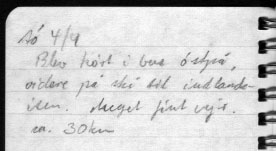 Sø 4/9
Blev kørt i
videre på ski til indlands-
isen. Meget fint vejr.
ca. 30 km